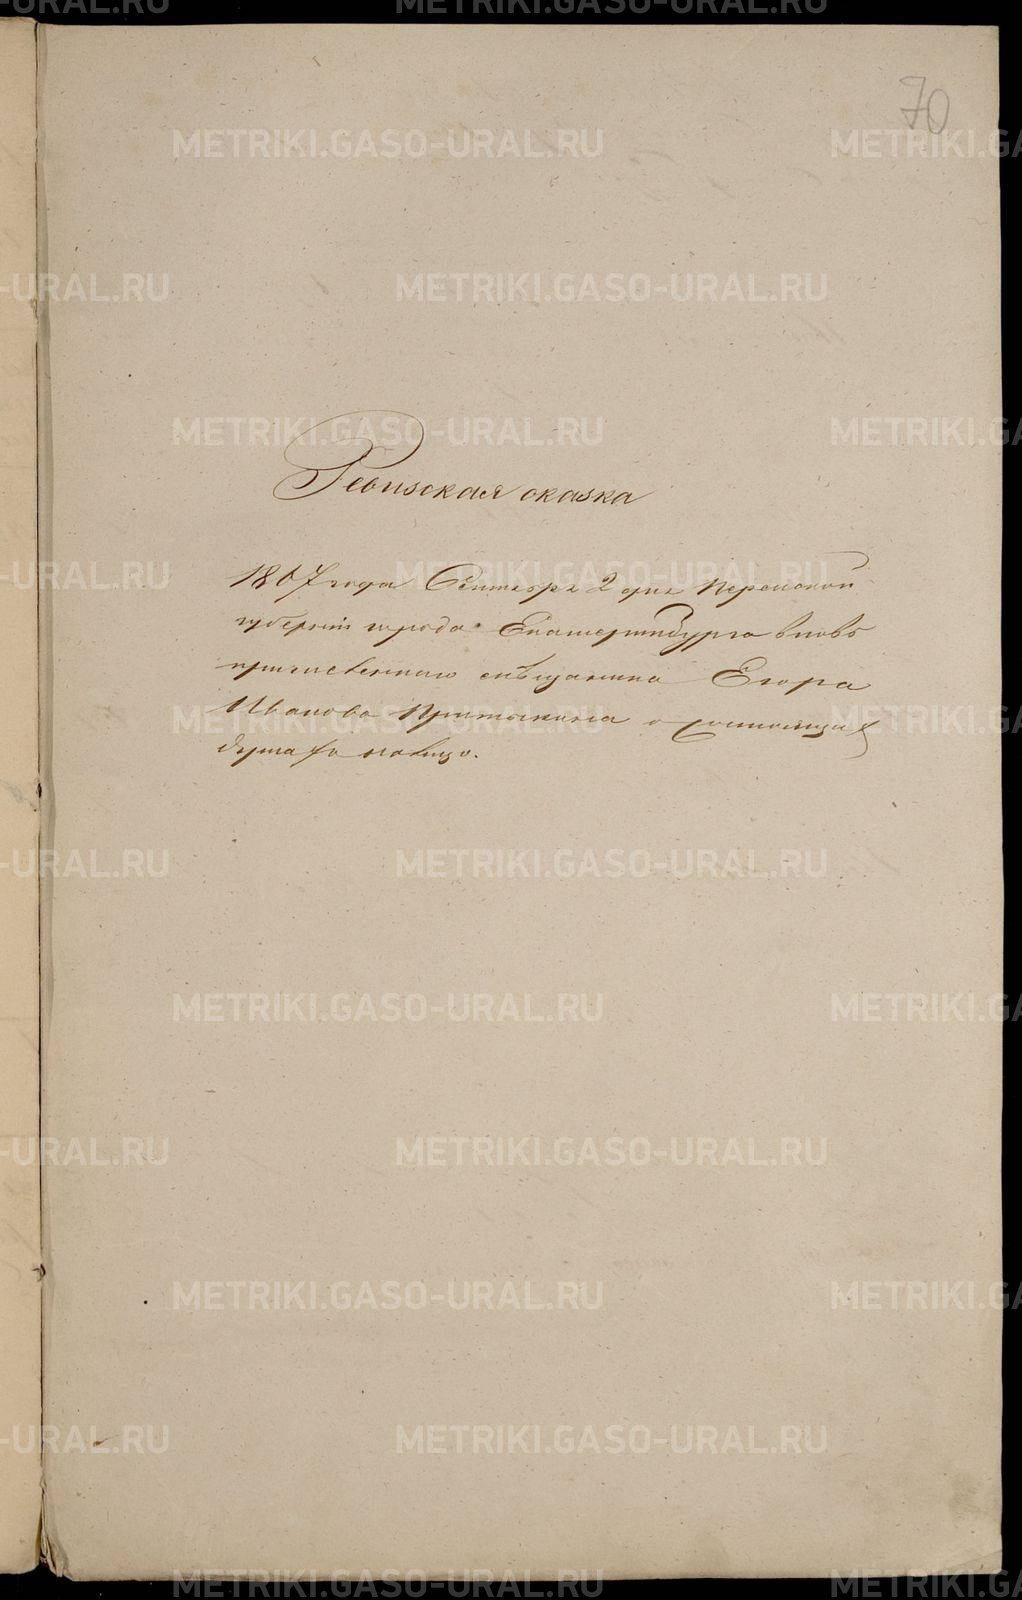 70
Ревизская сказка
1867 года Сентября 2 дня Пермской
губерніи города Екатеринбурга вновь
причисленнаго мѣщанина Егора
Иванова о состоящих
душа
METRIKI.GASO-URAL.RU